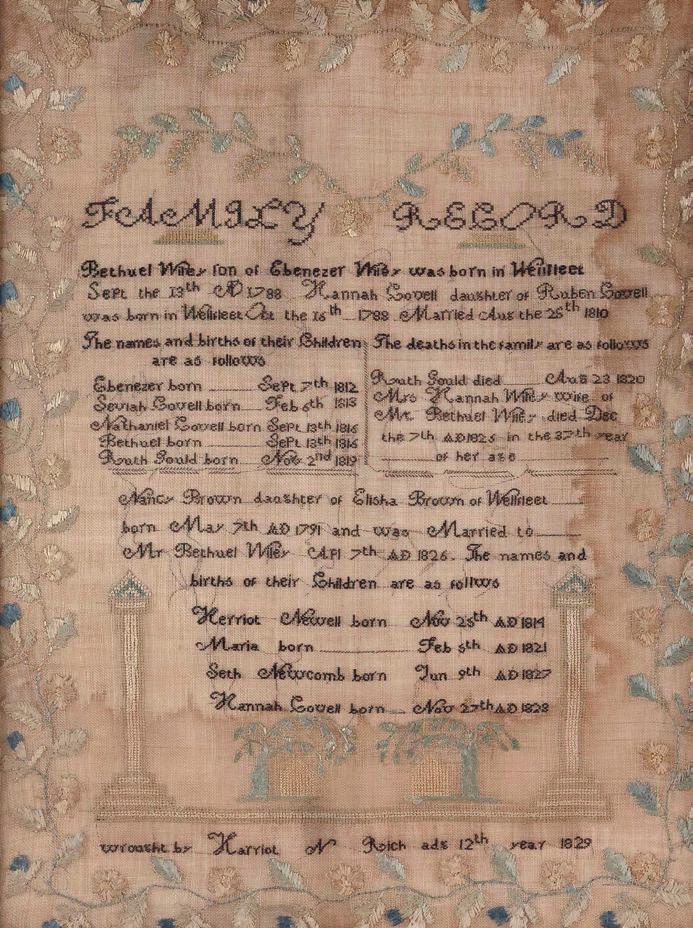 FAMILY RECORD
Bethuel Wiley son of Ebenezer Wiley was born in Wellfleet
Sept the 13th AD 1788 Hannah Lovell daughter of Ruben Lovell
was born in Wellfleet Oct the 16th 1788 Married Aug the 26th 1810
The names and births of their Children
are as follows
Ebenezer born Sept 7th 1812
Seviah Lovell born Feb 6th 1813
Nathaniel Lovell born Sept 13th 1816
Bethuel born Sept 13th 1816
Ruth Gould born Nov 2nd 1819
The deaths in the family are as follows
Ruth Gould died Aug 23 1820
Mrs Hannah Wiley wife of
Mr Bethuel Wiley died Dec
the 7th AD 1825 in the 37th year
of her age
Nancy Brown daughter of Elisha Brown of Wellfleet
born May 7th AD 1791 and was Married to
Mr Bethuel Wiley 7th AD 1826. The names and
births of their Children are as follws
Herriot Newell born Nov 25th AD 1814
Maria born Feb 5th AD 1821
Seth Newcomb born Jun 9th AD 1827
Hannah Lovell born Nov 27th AD 1828
wrought by Harriot N Rich 12th year 1829